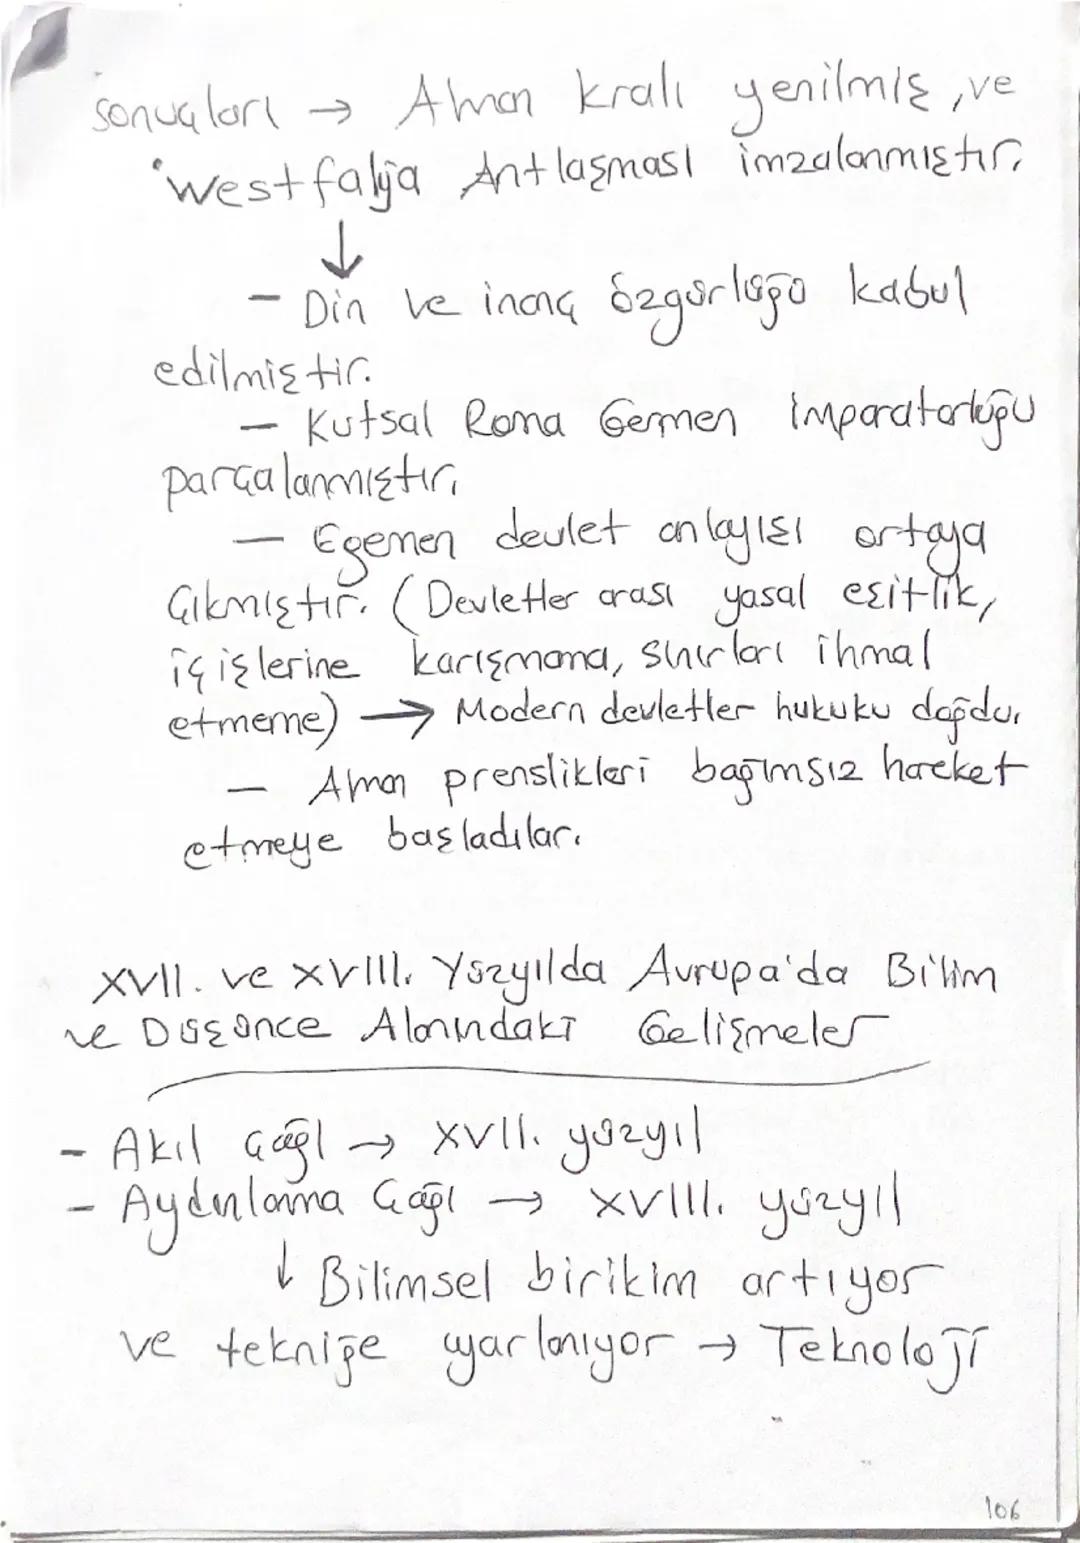 sonuçları → Alman kralı yenilmiş, ve
Westfalya Antlaşması imzalanmıştır.
↓
- Din ve inanç özgürlüğü kabul
edilmiştir.
- Kutsal Roma Germen imparatorluğu
parçalanmıştır.
- Egemen devlet anlayışı ortaya
Çıkmıştır. (Devletler arası yasal eşitlik,
iç işlerine karışmama, sınırları ihmal
etmeme) → Modern devletler hukuku doğdu.
- Alman prenslikleri bağımsız hareket
etmeye başladılar.
XVII. ve XVIII. Yüzyılda Avrupa'da Bilim
ve Düşünce Alanındaki Gelişmeler
- Akıl Çağı → XVII. yüzyıl
- Aydınlanma Çağı → XVIII. yüzyıl
↓ Bilimsel birikim artıyor
ve tekniğe uyarlanıyor → Teknoloji
106